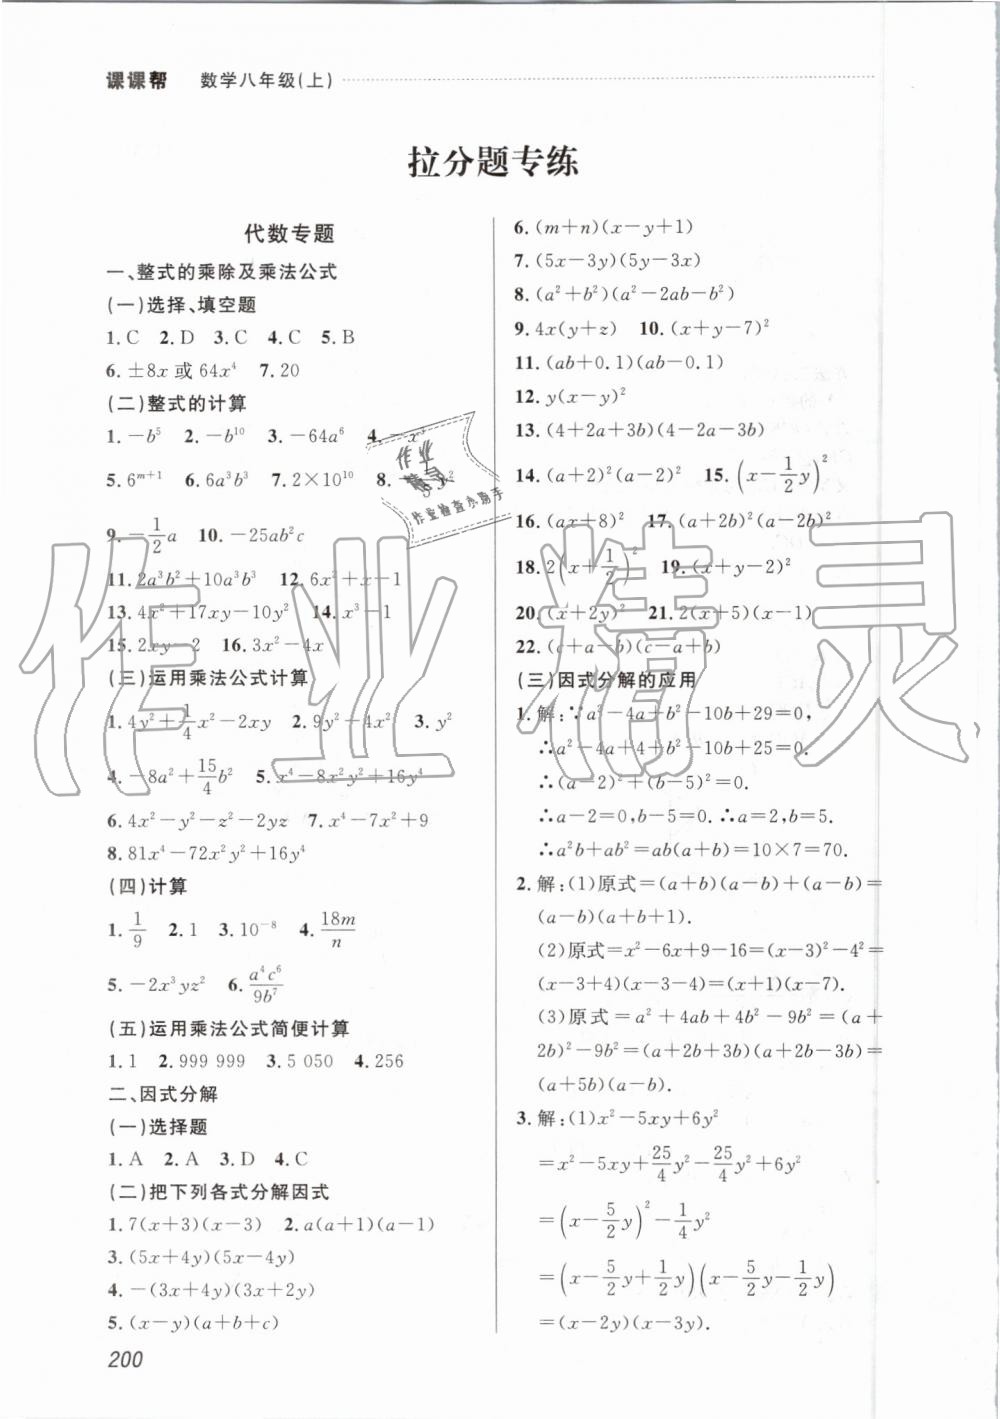 课课帮 数学八年级(上)
拉分题专练
代数专题
一、整式的乘除及乘法公式
(一)选择、填空题
1. C 2. D 3. C 4. C 5. B
6. ±8x 或 64x⁴ 7. 20
(二)整式的计算
1. −b⁵ 2. −b¹⁰ 3. −64a⁶ 4. −x³
5. 6ᵐ⁺¹ 6. 6a³b³ 7. 2×10¹⁰ 8.
9. −1/2a 10. −25ab²c
11. 2a³b²+10a³b³ 12. 6x²+x−1
13. 4x²+17xy−10y² 14. x³−1
15. 2xy−2 16. 3x²−4x
(三)运用乘法公式计算
1. 4y²+1/4x²−2xy 2. 9y²−4x² 3. y²
4. −8a²+15/4b² 5. x⁴−8x²y²+16y⁴
6. 4x²−y²−z²−2yz 7. x⁴−7x²+9
8. 81x⁴−72x²y²+16y⁴
(四)计算
1. 1/9 2. 1 3. 10⁻⁸ 4. 18m/n
5. −2x³yz² 6. a⁴c⁶/9b⁷
(五)运用乘法公式简便计算
1. 1 2. 999 999 3. 5 050 4. 256
二、因式分解
(一)选择题
1. A 2. A 3. D 4. C
(二)把下列各式分解因式
1. 7(x+3)(x−3) 2. a(a+1)(a−1)
3. (5x+4y)(5x−4y)
4. −(3x+4y)(3x+2y)
5. (x−y)(a+b+c)
6. (m+n)(x−y+1)
7. (5x−3y)(5y−3x)
8. (a²+b²)(a²−2ab−b²)
9. 4x(y+z) 10. (x+y−7)²
11. (ab+0.1)(ab−0.1)
12. y(x−y)²
13. (4+2a+3b)(4−2a−3b)
14. (a+2)²(a−2)² 15. (x−1/2y)²
16. (ax+8)² 17. (a+2b)²(a−2b)²
18. 2(x+1/2)² 19. (x+y−2)²
20. (x+2y)² 21. 2(x+5)(x−1)
22. (c+a−b)(c−a+b)
(三)因式分解的应用
1. 解:∵a²−4a+b²−10b+29=0,
∴a²−4a+4+b²−10b+25=0.
∴(a−2)²+(b−5)²=0.
∴a−2=0,b−5=0.∴a=2,b=5.
∴a²b+ab²=ab(a+b)=10×7=70.
2. 解:(1)原式=(a+b)(a−b)+(a−b)=
(a−b)(a+b+1).
(2)原式=x²−6x+9−16=(x−3)²−4²=
(x−3+4)(x−3−4)=(x+1)(x−7).
(3)原式=a²+4ab+4b²−9b²=(a+
2b)²−9b²=(a+2b+3b)(a+2b−3b)=
(a+5b)(a−b).
3. 解:(1)x²−5xy+6y²
=x²−5xy+25/4y²−25/4y²+6y²
=(x−5/2y)²−1/4y²
=(x−5/2y+1/2y)(x−5/2y−1/2y)
=(x−2y)(x−3y).
200
作业精灵
作业精灵
作业检查小助手